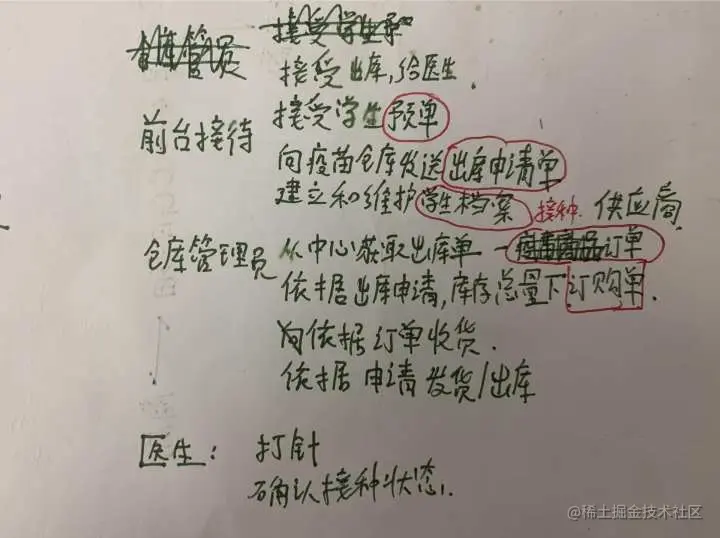 仓库管员 接受学生
接受出库,给医生.
前台接待 接受学生预单
向疫苗仓库发送出库申请单
建立和维护学生档案 接种. 供应商
仓库管理员 从中心获取出库单—订单
依据出库申请,库存总量下订购单.
向依据订单收货.
依据申请发货/出库
医生: 打针
确认接种状态.
@稀土掘金技术社区